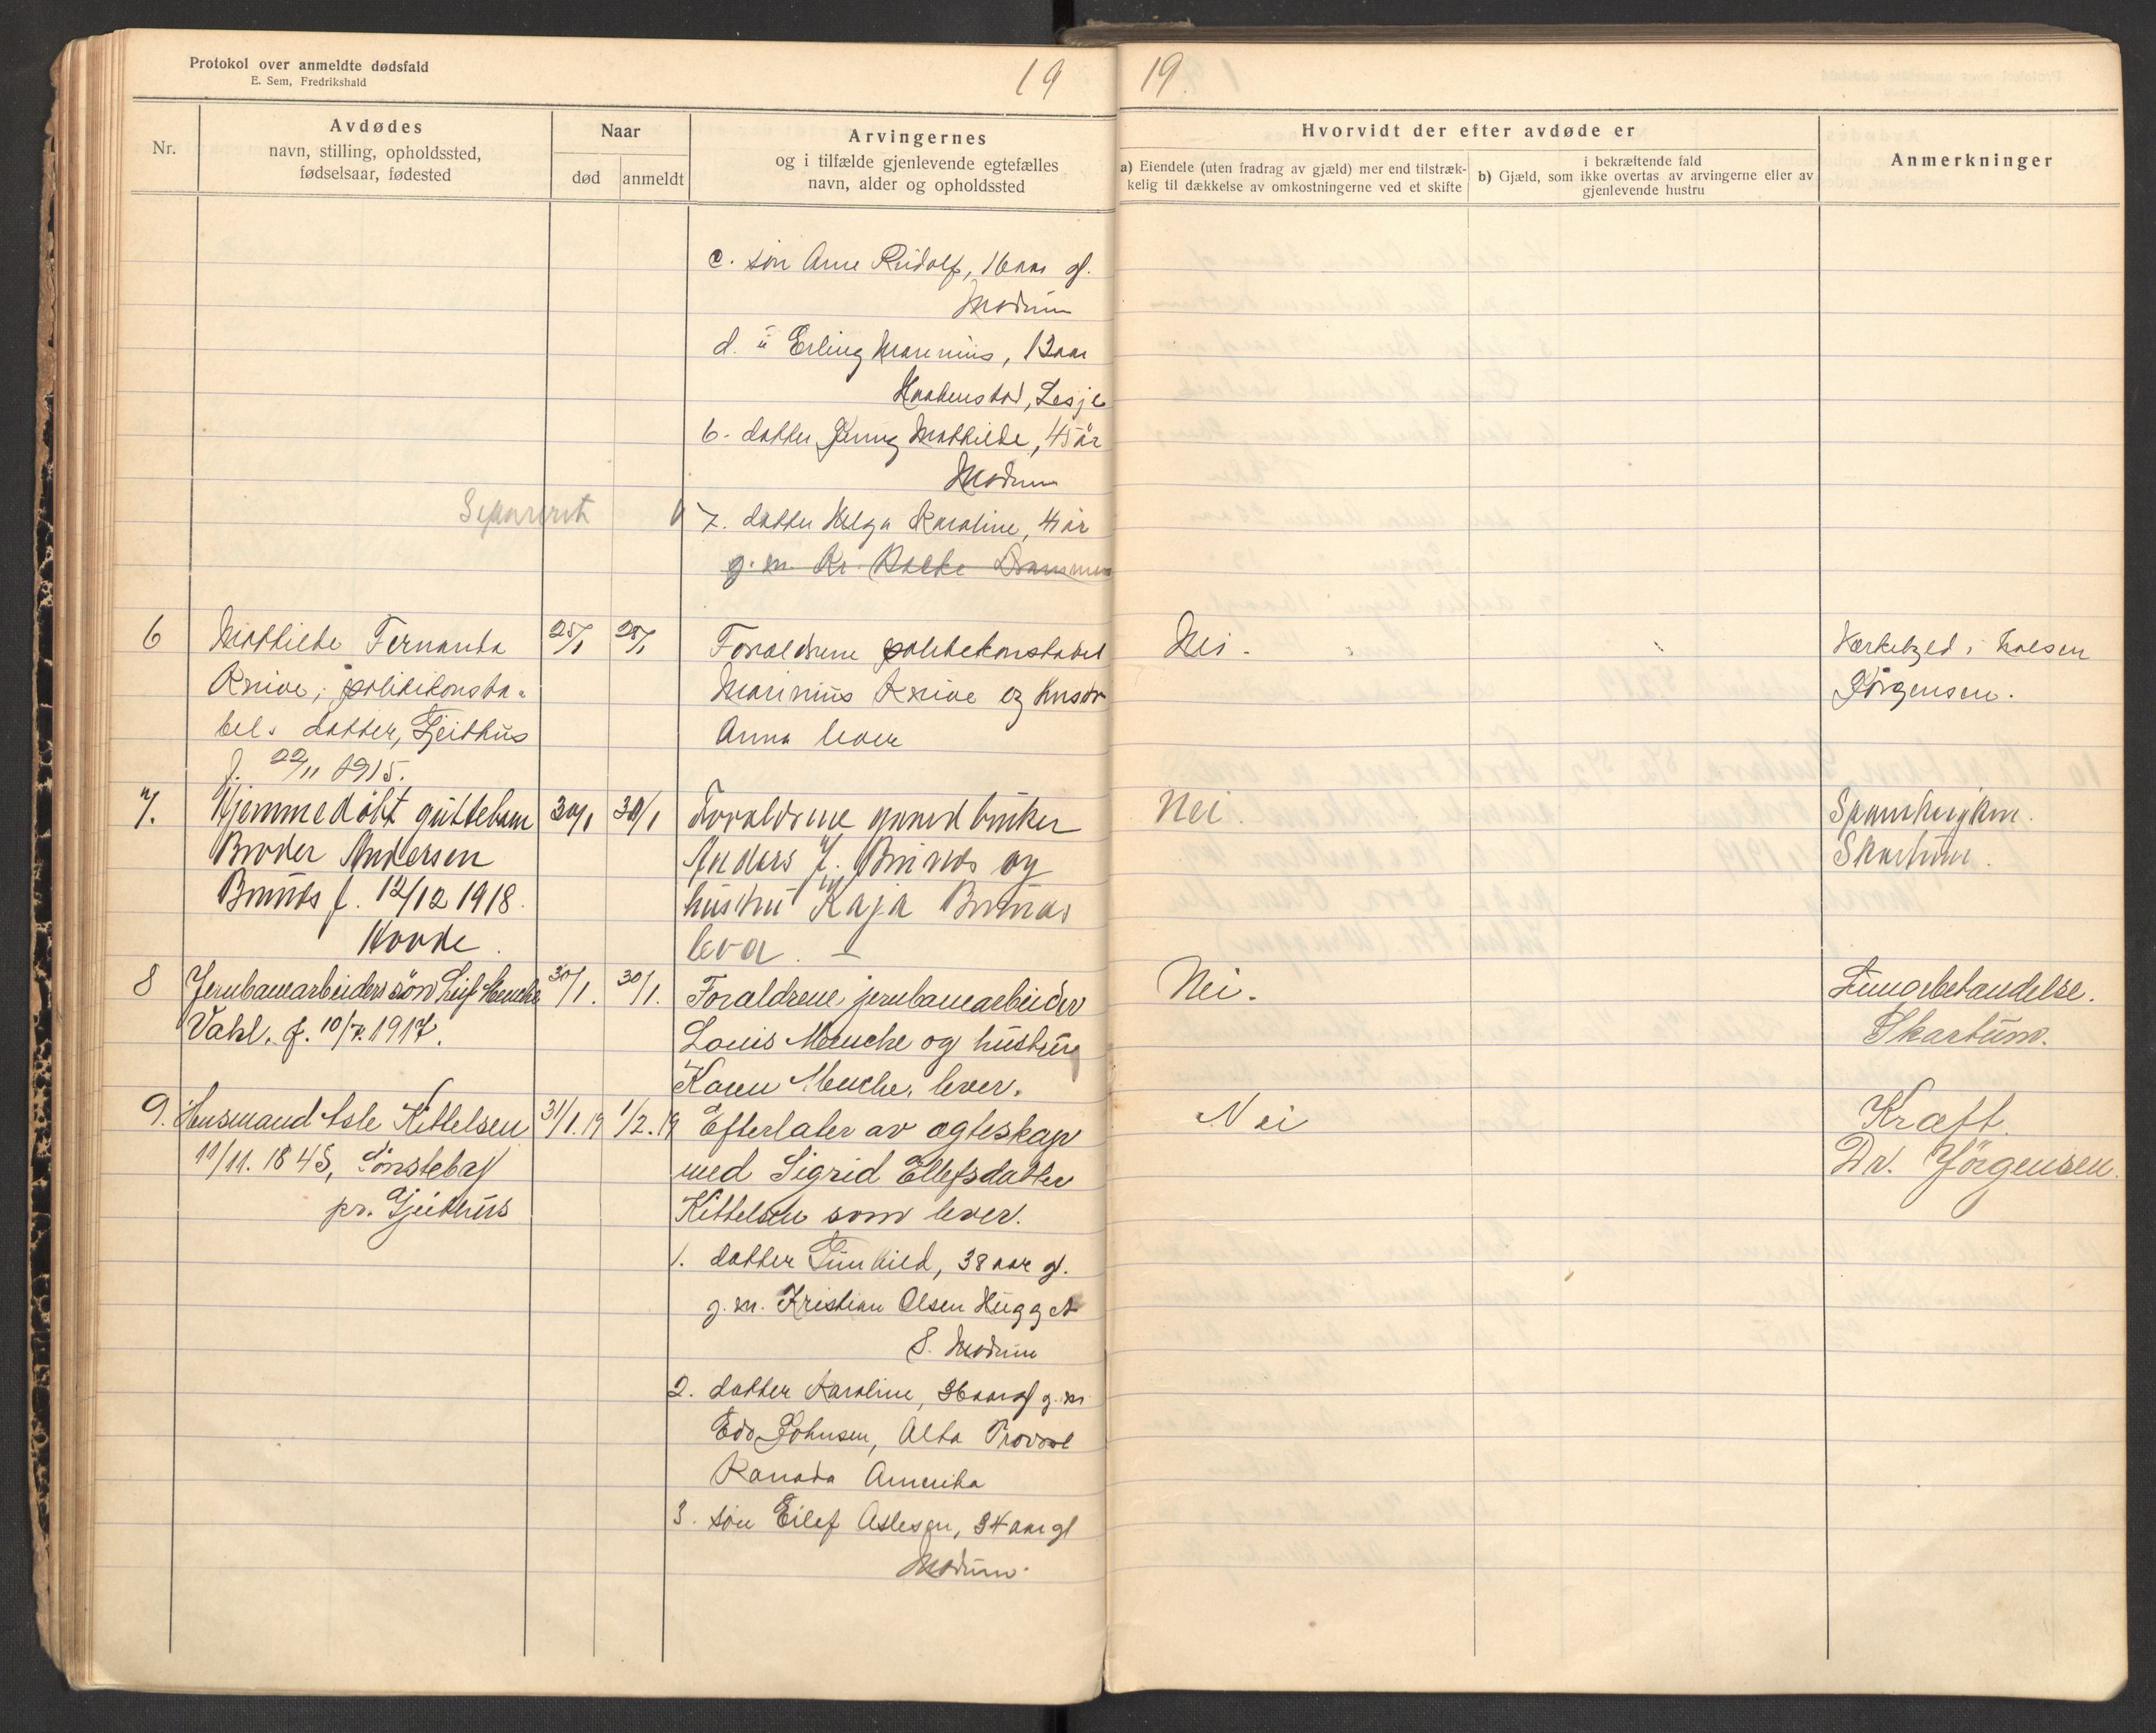 Protokol over anmeldte dødsfald
E. Sem, Fredrikshald
19
19.
Nr.
Avdødes
navn, stilling, opholdssted,
fødselsaar, fødested
Naar
død
anmeldt
Arvingernes
og i tilfælde gjenlevende egtefælles
navn, alder og opholdssted
Hvorvidt der efter avdøde er
a) Eiendele (uten fradrag av gjæld) mer end tilstræk-
kelig til dækkelse av omkostningerne ved et skifte
i bekræftende fald
b) Gjæld, som ikke overtas av arvingerne eller av
gjenlevende hustru
Anmerkninger
c. søn Arne Rudolf, 16 aar gl.
Modum
d. " Erling Marenius, 12 aar
Lesje
6. datter Jenny Mathilde, 45 år
Modum
Separert
7. datter Helga Karoline, 41 år
g. m. Kr. Bakke Drammen
6
Mathilde Fernanda
Knive, politikonsta-
bels datter, Gjeithus
f. 22/11 1915.
25/1
28/1
Foraldrene politikonstabel
Marinius Knive og hustr
Anna lever
Nei.
i halsen
Jörgensen.
7.
Hjemmedöbt guttebarn
Broder Andersen
Brunæs f. 12/12 1918.
30/1
30/1
Foraldrene gaardbruker
Anders J. Brunæs og
hustru Kaja Brunæs
lever. –
Nei.
Skartum.
8
Jernbanearbeiders søn Leif Menche
Vahl. f. 10/7. 1917.
30/1.
30/1.
Foraldrene, jernbanearbeider
Louis Menche og hustru
Karen Menche, lever.
Nei.
Lungebetændelse.
Skartum.
9.
Husmand Asle Kittelsen
11/11. 1845, Sønsteby
pr. Gjeithus
31/1. 19
1/2. 19
Efterlater av ægteskap
med Sigrid Ellefsdatter
Kittelsen som lever.
Nei
Kræft.
Dr. Jörgensen.
1. datter Gunhild, 38 aar gl.
g. m. Kristian Olsen Hugget
S. Modum
2. datter Karoline, 36 aar gl g. m
Edv Johnsen, Alta
Kanada Amerika
3. søn Eilef Aslesen, 34 aar gl
Modum.